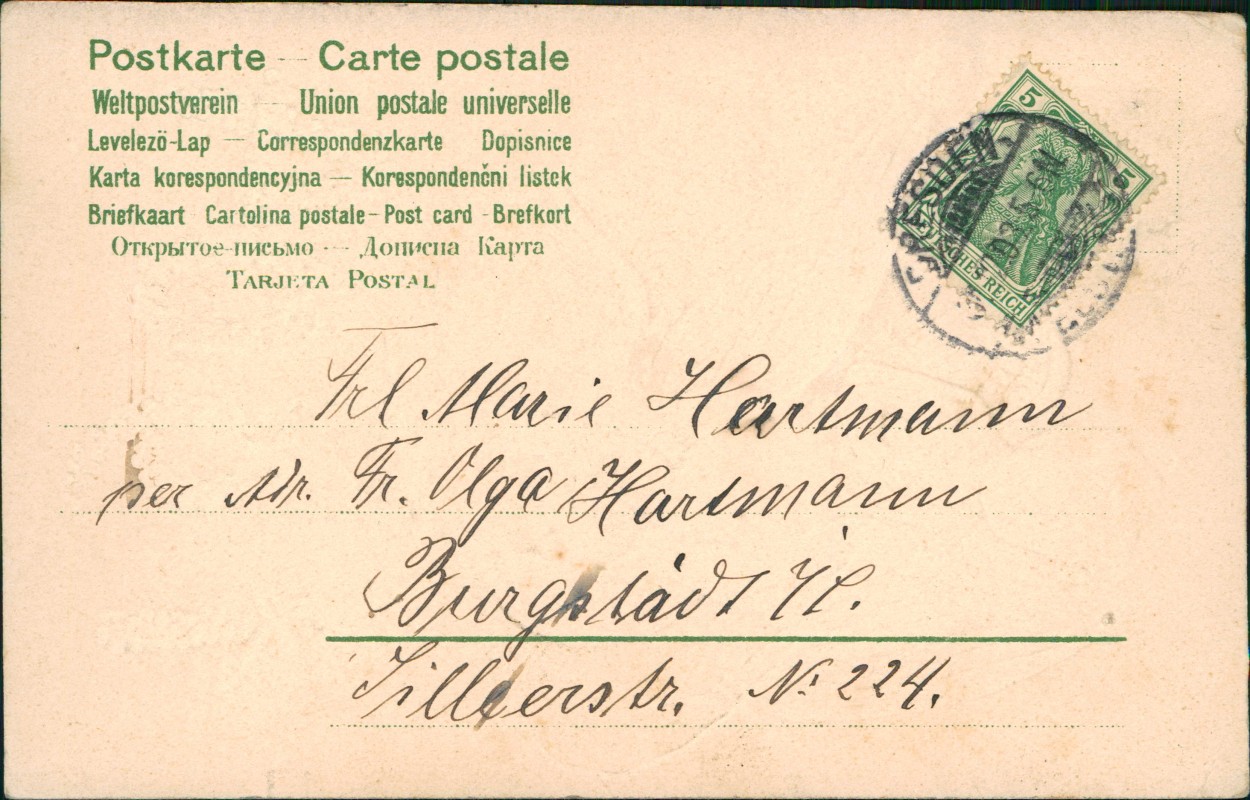 Postkarte — Carte postale
Weltpostverein — Union postale universelle
Levelező-Lap — Correspondenzkarte Dopisnice
Karta korespondencyjna — Korespondenčni listek
Briefkaart Cartolina postale - Post card - Brefkort
Открытое письмо — Дописна Карта
Tarjeta Postal
5
5
REICH
Frl Marie Hartmann
per Adr. Fr. Olga Hartmann
Burgstädt
No 224.